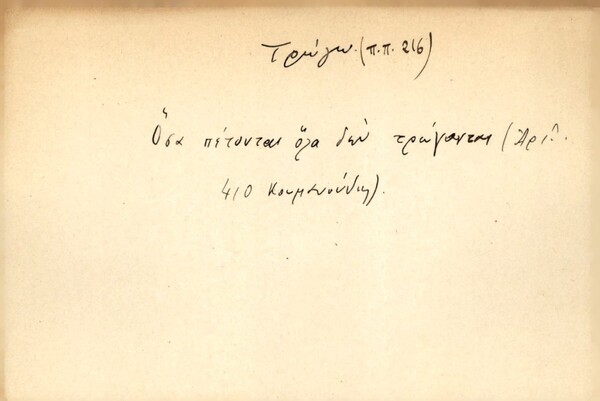 Τρώγω. (π.π. 216)
Ὅσα πέτονται ὅλα δὲν τρώγονται (Ἀρι.
410 Κουμανούδης).